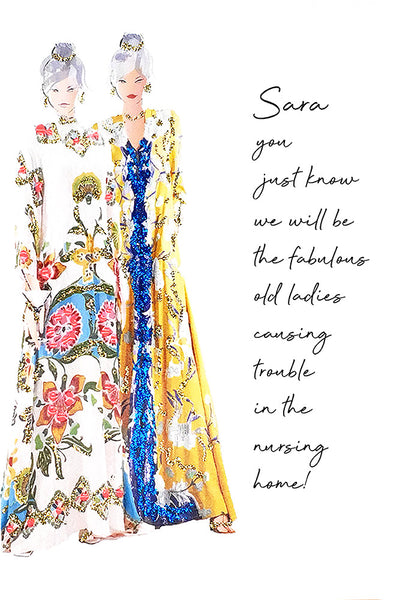 Sara
you
just know
we will be
the fabulous
old ladies
causing
trouble
in the
nursing
home!